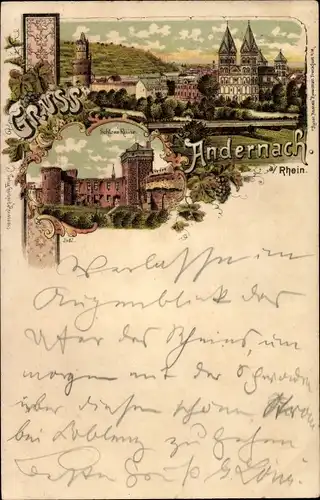 Gruss
Andernach
a/ Rhein.
Schloss Ruine
Verlasse im
Augenblick das
Ufer des Rheins, um
morgen mit der
über diesen schönen Strom
bei Coblenz zu gehen
Besten Gruß